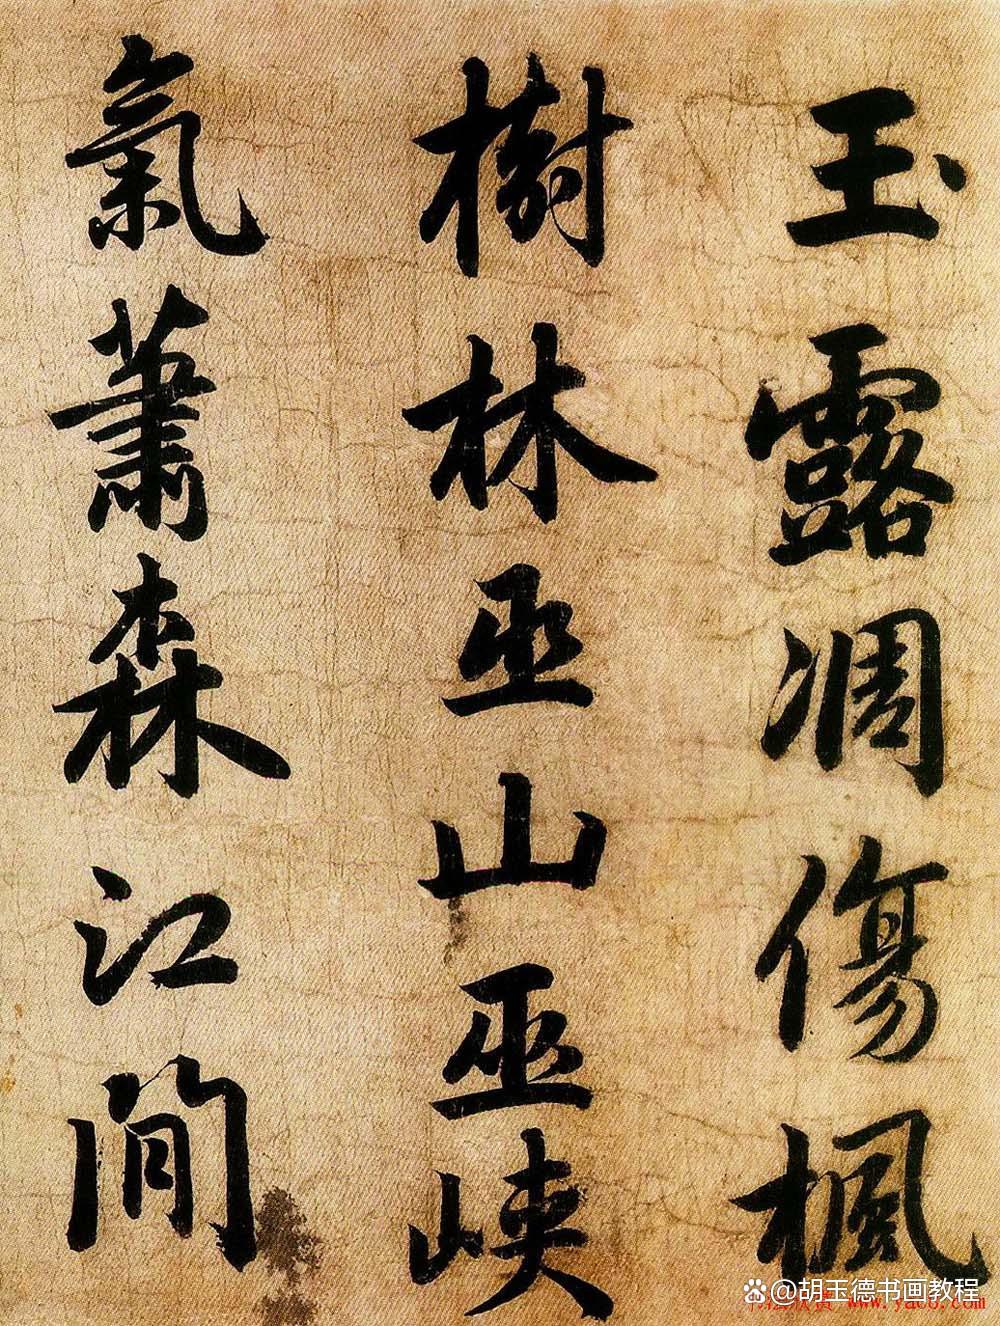 玉露凋傷楓
樹林巫山巫峽
氣蕭森江間
@胡玉德书画教程
www.yac8.com